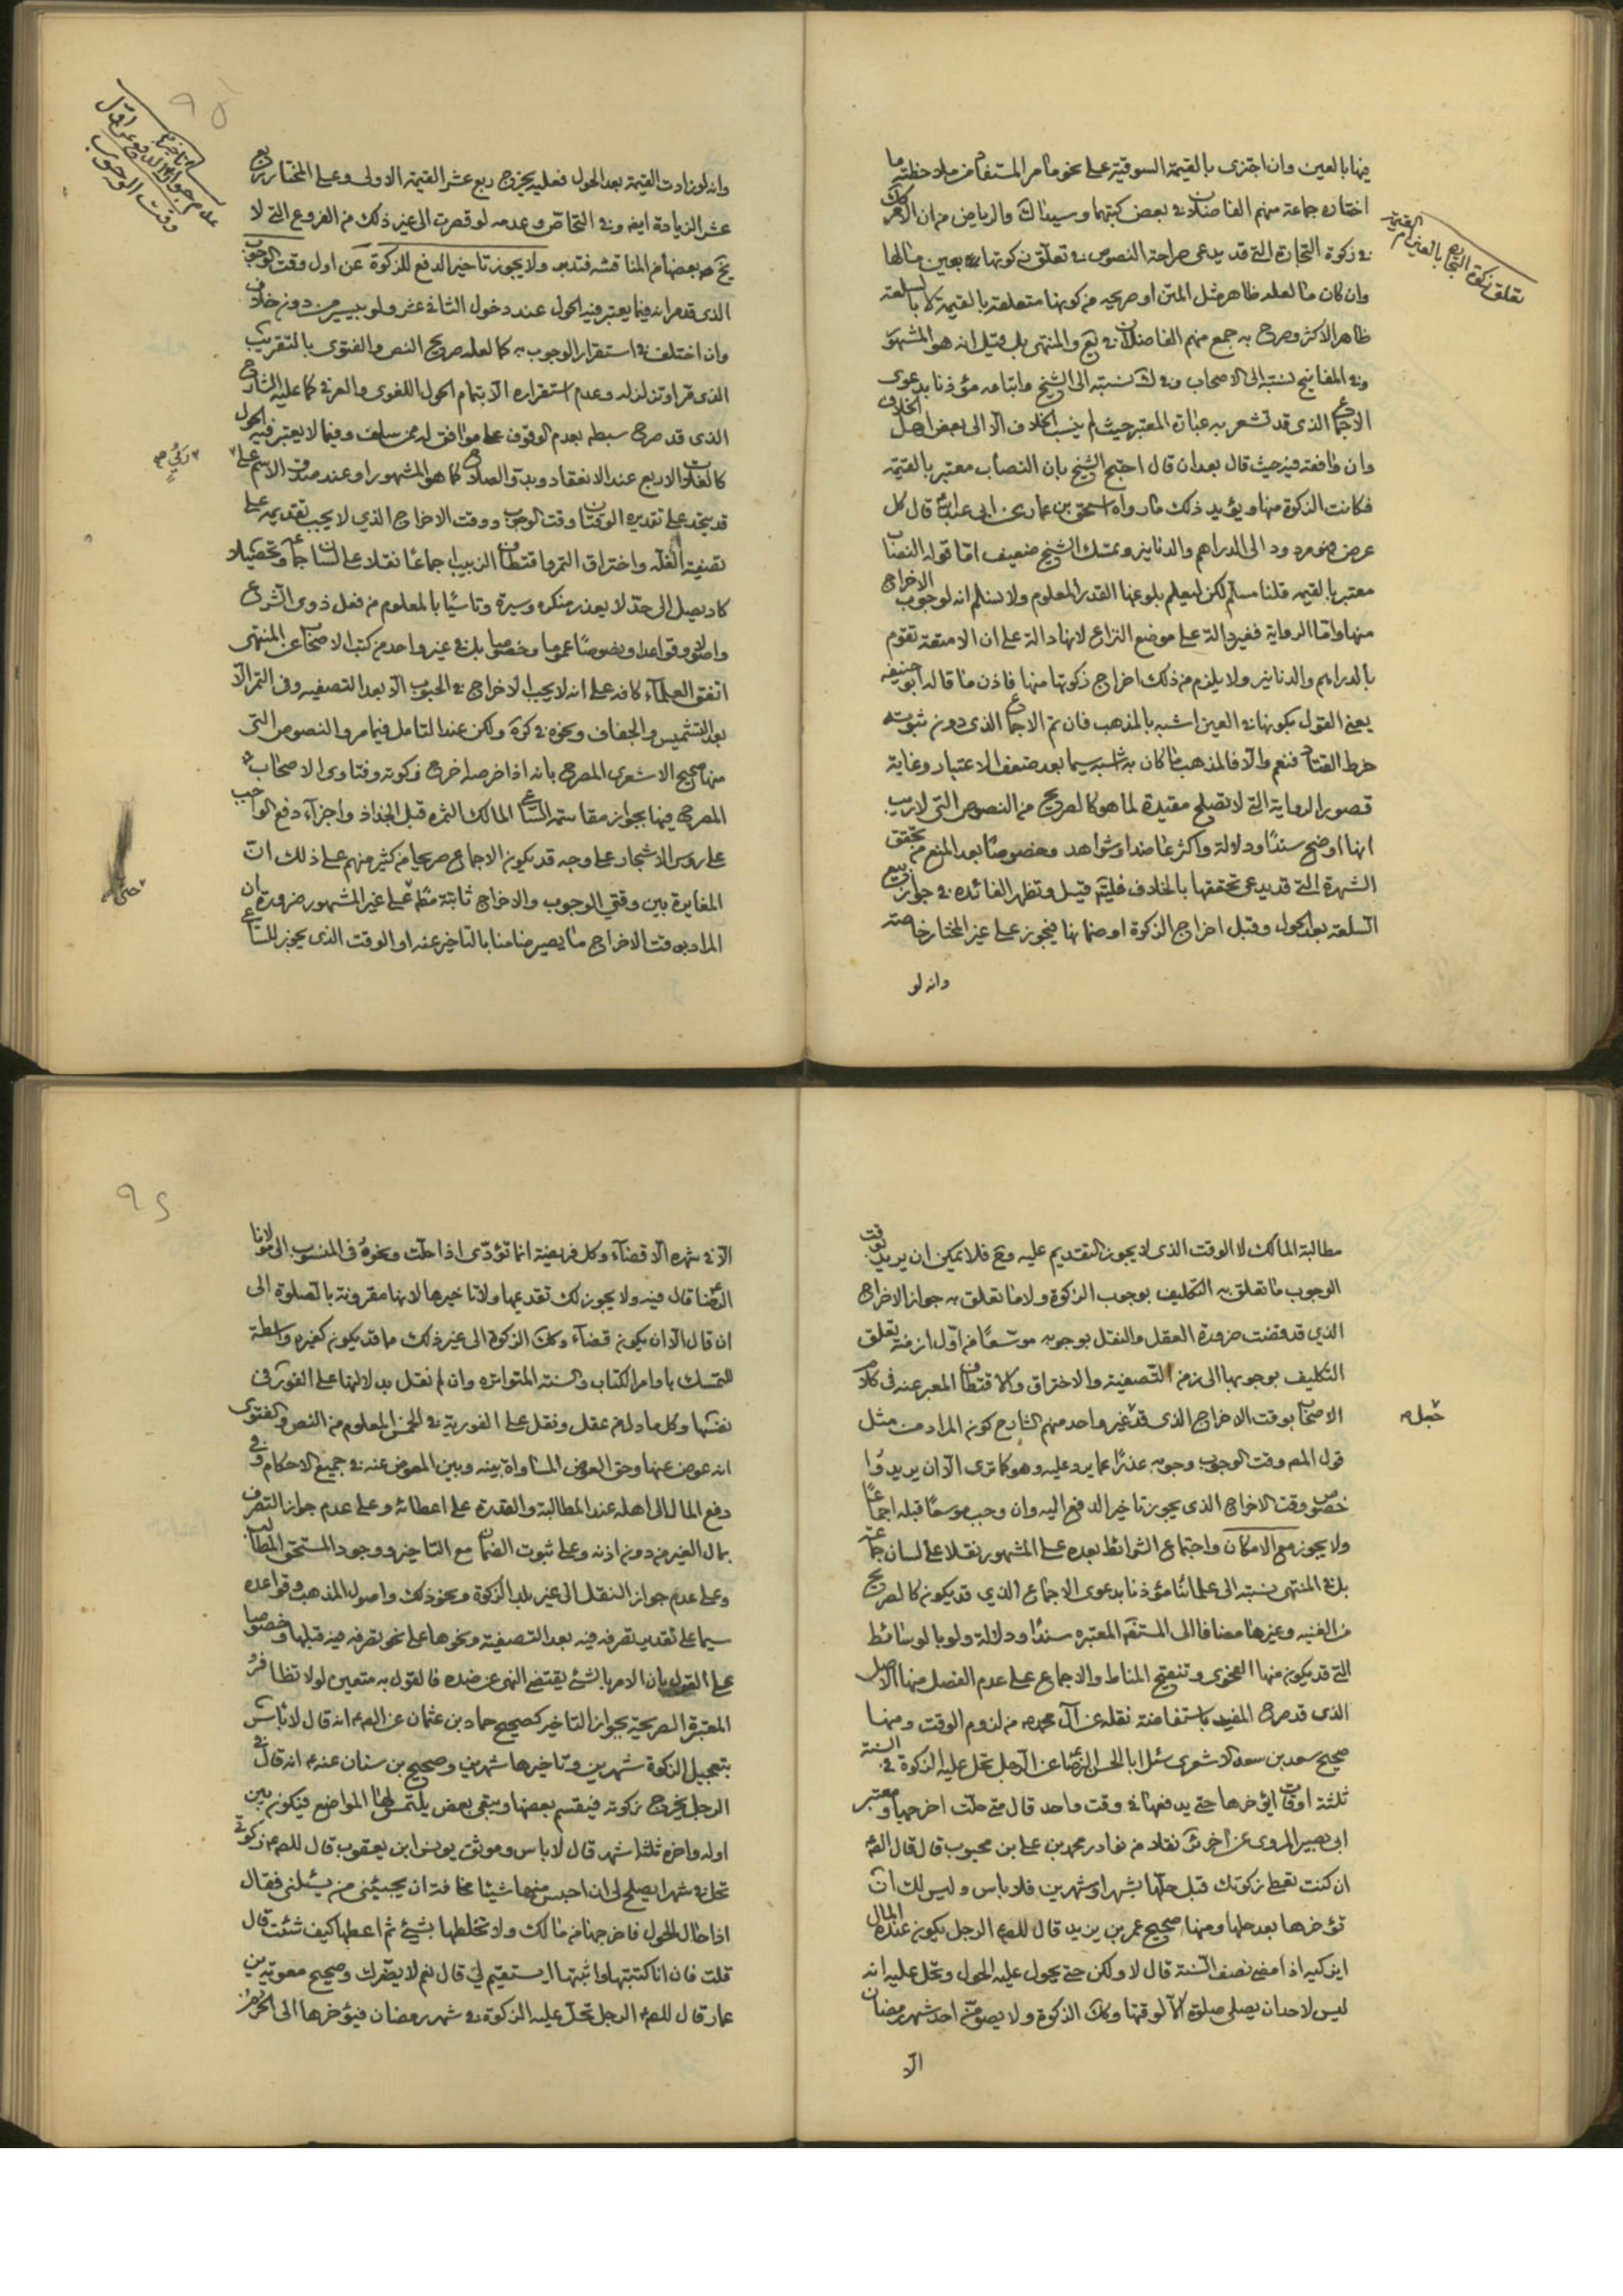 فيها بالعين وان اجتزى بالقيمة السوقية على نحو ما مر المستفاد من ملاحظة ما
اختاره جماعة منهم الفاضلان في بعض كتبهما وسيد المدارك والرياض من ان الامر
في زكوة التجارة التي قد يدعى صراحة النصوص في تعلق زكوتها بعين مالها
وان كان ما لعله ظاهر مثل المتن او صريحه من كونها متعلقة بالقيمة لا بالسلعة
ظاهر الاكثر وصرح به جمع منهم الفاضلان في يع والمنتهى بل قيل انه هو المشهور
وفي المفاتيح نسبته الى الاصحاب وفي نسبته الى الشيخ واتباعه مؤذنا بدعوى
الاجماع الذي قد تشعر به عبارة المعتبر حيث لم ينسب الخلاف الا الى بعض اهل الخلاف
وان وافقه فيه حيث قال بعد ان قال احتج الشيخ بان النصاب معتبر بالقيمة
فكانت الزكوة منها ويؤيد ذلك ما رواه اسحق بن عمار عن ابي عبد الله قال كل
عرض فهو مردود الى الدراهم والدنانير وتمسك الشيخ ضعيف اما قوله النصاب
معتبر بالقيمة قلنا مسلم لكن ليعلم بلوغها القدر المعلوم ولا نسلم انه لوجوب الاخراج
منها واما الرواية فغير دالة على موضع النزاع لانها دالة على ان الامتعة تقوم
بالدراهم والدنانير ولا يلزم من ذلك اخراج زكوتها منها فاذن ما قاله ابو حنيفه
يعني القول بكونها في العين اشبه بالمذهب فان تم الاجماع الذي دون ثبوته
خرط القتاد فنعم والا فالمذهب ما كان به اشبه سيما بعد ضعف الاعتبار وغاية
قصور الرواية التي لا تصلح مقيدة لما هو كالصريح من النصوص التي لا ريب
انها اوضح سندا ودلالة واكثر عاضدا وشواهد وخصوصا بعد المنع من تحقق
الشهرة التي قد يدعى تحققها بالخلاف فليتم قيل وتظهر الفائده في جواز بيع
السلعة بعد الحول وقبل اخراج الزكوة او ضمانها فيجوز على غير المختار خاصته
وانه لو
تعلق زكوة التجارة بالعين ام القيمة
وانه لو زادت القيمة بعد الحول فعليه يخرج ربع عشر القيمة الاولى وعلى المختار ربع
عشر الزيادة ايضا وفي التحاص وعدمه لو قصرت الى غير ذلك من الفروع التي لا
يخ بعضها من المناقشه فتدبر ولا يجوز تاخير الدفع للزكوة عن اول وقت الوجوب
الذي قد مر انه فيما يعتبر فيه الحول عند دخول الثاني عشر ولو بيسير من دون خلاف
وان اختلف في استقرار الوجوب به كما لعله صريح النص والفتوى بالتقريب
الذي مر او تزلزله وعدم استقراره الا بتمام الحول اللغوي والعرفي كما عليه الشارح
الذي قد صرح سبطه بعدم الوقوف على موافق له ممن سلف وفيما لا يعتبر فيه الحول
كالغلات الاربع عند الانعقاد وبدو الصلاح كما هو المشهور او عند صدق الاسم على
قد يتحد على تقديره الوقتان وقت الوجوب ووقت الاخراج الذي لا يجب تقديمه على
تصفية الغلة واختراق التمر واقتطاف الزبيب اجماعا نقلا على لسان جماعة وتحصيلا
كاد يصل الى حد لا يعذر منكره وسيرة وتاسيا بالمعلوم من فعل ذوي الشرع
واصولا وقواعدا ونصوصا عموما وخصوصا بل في غير واحد من كتب الاصحاب عن المنتهى
اتفق العلماء كافه على انه لا يجب الاخراج في الحبوب الا بعد التصفيه وفي التمر الا
بعد التشميس والجفاف ونحوه في كرة ولكن عند التامل فيما مر والنصوص التي
منها صحيح الاشعري المصرح بانه اذا خرصه اخرج زكوته وفتاوى الاصحاب
المصرح فيها بجواز مقاسمة الساعي المالك الثمره قبل الجذاذ واجزاء دفع الواجب
على رؤس الاشجار على وجه قد يكون الاجماع صريحا من كثير منهم على ذلك ان
المغايرة بين وقتي الوجوب والاخراج ثابتة مط على غير المشهور ضرورة ان
المراد بوقت الاخراج ما يصير ضامنا بالتاخير عنه او الوقت الذي يجوز للساعي
مطالبة المالك لا الوقت الذي لا يجوز التقديم عليه ومع فلا يمكن ان يريد بوقت
الوجوب ما تعلق به التكليف بوجوب الزكوة ولا ما تعلق به جواز الاخراج
الذي قد قضت ضرورة العقل والنقل بوجوبه موسعا من اول ازمنة تعلق
التكليف بوجوبها الى زمن التصفية والاختراق والاقتطاف المعبر عنه في كلام
الاصحاب بوقت الاخراج الذي قد غير واحد منهم الشارح كون المراد من مثل
قول المصم وقت الوجوب وجوبه عذرا عما يرد عليه وهو كما ترى الا ان يريدوا
خصوص وقت الاخراج الذي يجوز تاخير الدفع اليه وان وجب موسعا قبله اجماعا
ولا يجوز مع الامكان واجتماع الشرائط بعده على المشهور نقلا على لسان جماعة
بل في المنتهى نسبته الى علمائنا مؤذنا بدعوى الاجماع الذي قد يكون كالصريح
من الغنيه وغيرها مضافا الى المستفيضة المعتبره سندا ودلالة ولو بالوسائط
التي قد يكون منها الفحوى وتنقيح المناط والاجماع على عدم الفصل منها الاصل
الذي قد صرح المفيد باستفاضته نقله عن آل محمد من لزوم الوقت ومنها
صحيح سعد بن سعد الاشعري سئل ابا الحسن الرضا عن الرجل تحل عليه الزكوة في السنة
ثلثة اوقات ايؤخرها حتى يدفعها في وقت واحد قال متى حلت اخرجها ومعتبر
ابي بصير المروي عن آخر ئر نقلا من نوادر محمد بن علي بن محبوب قال قال الصم
ان كنت تعطي زكوتك قبل حلها بشهر او شهرين فلا باس وليس لك ان
تؤخرها بعد حلها ومنها صحيح عمر بن يزيد قال للصم الرجل يكون عنده المال
ايزكيه اذا مضى نصف السنة قال لا ولكن حتى يحول عليه الحول وتحل عليه انه
ليس لاحد ان يصلي صلوة الا لوقتها وكك الزكوة ولا يصوم احد شهر رمضان
الا
الا في شهره الا قضاء وكل فريضة انما تؤدى اذا حلت ونحوه في المنسوب الى مولانا
الرضا قال فيه ولا يجوز لك تقديمها ولا تاخيرها لانها مقرونة بالصلوة الى
ان قال الا ان يكون قضاء وكك الزكوة الى غير ذلك ما قد يكون كغيره واسطة
للتمسك باوامر الكتاب والسنة المتواتره وان لم نقل بدلالتها على الفور في
نفسها وكل ما دل من عقل ونقل على الفورية في الخمس المعلوم من النص والفتوى
انه عوض عنها وحق العوض المساواة بينه وبين المعوض عنه في جميع الاحكام وفي
دفع المال الى اهله عند المطالبة والقدرة على اعطائه وعلى عدم جواز التصرف
بمال الغير من دون اذنه وعلى ثبوت الضمان مع التاخير ووجود المستحق المطالب
وعلى عدم جواز النقل الى غير بلد الزكوة ونحو ذلك واصول المذهب وقواعده
سيما على تقدير تصرفه فيه بعد التصفية ونحوها على نحو تصرفه فيه قبلها وخصوصا
على القول بان الامر بالشئ يقتضي النهي عن ضده فالقول به متعين لولا تظافر
المعتبرة الصريحة بجواز التاخير كصحيح حماد بن عثمان عن الصم انه قال لا باس
بتعجيل الزكوة شهرين وتاخيرها شهرين وصحيح بن سنان عنه انه قال في
الرجل يخرج زكوته فيقسم بعضها ويبقى بعض يلتمس لها المواضع فيكون بين
اوله واخره ثلثة اشهر قال لا باس وموثق يونس ابن يعقوب قال للصم زكوتي
تحل في شهر ايصلح لي ان احبس منها شيئا مخافة ان يجيئني من يسئلني فقال
اذا حال الحول فاخرجها من مالك ولا تخلطها بشئ ثم اعطها كيف شئت قال
قلت فان انا كتبتها واثبتها ايستقيم لي قال نعم لا يضرك وصحيح معوية بن
عمار قال للصم الرجل تحل عليه الزكوة في شهر رمضان فيؤخرها الى المحرم